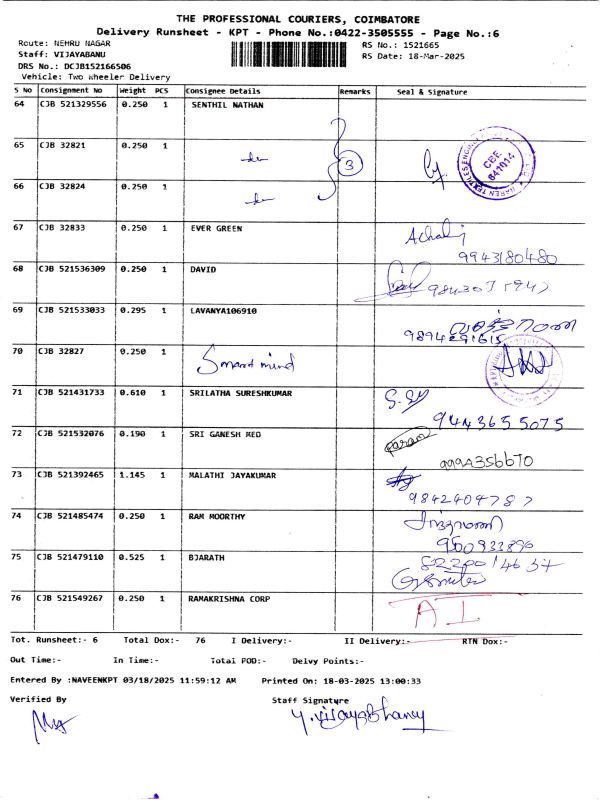 THE PROFESSIONAL COURIERS, COIMBATORE
Delivery Runsheet - KPT - Phone No.:0422-3505555 - Page No.:6
Route: NEHRU NAGAR
RS No.: 1521665
Staff: VIJAYABANU
RS Date: 18-Mar-2025
DRS No.: DCJB152166506
Vehicle: Two Wheeler Delivery
S No Consignment No Weight PCS Consignee Details Remarks Seal & Signature
64 CJB 521329556 0.250 1 SENTHIL NATHAN
65 CJB 32821 0.250 1
3
CBE
641014
66 CJB 32824 0.250 1
67 CJB 32833 0.250 1 EVER GREEN
9943180480
68 CJB 521536309 0.250 1 DAVID
69 CJB 521533033 0.295 1 LAVANYA106910
9894291615
70 CJB 32827 0.250 1 Smart mind
71 CJB 521431733 0.610 1 SRILATHA SURESHKUMAR
9443655075
72 CJB 521532076 0.190 1 SRI GANESH MED
9994356670
73 CJB 521392465 1.145 1 MALATHI JAYAKUMAR
9842404787
74 CJB 521485474 0.250 1 RAM MOORTHY
75 CJB 521479110 0.525 1 BJARATH
76 CJB 521549267 0.250 1 RAMAKRISHNA CORP
AI
Tot. Runsheet:- 6 Total Dox:- 76 I Delivery:- II Delivery:- RTN Dox:-
Out Time:- In Time:- Total POD:- Delvy Points:-
Entered By :NAVEENKPT 03/18/2025 11:59:12 AM Printed On: 18-03-2025 13:00:33
Verified By
Staff Signature